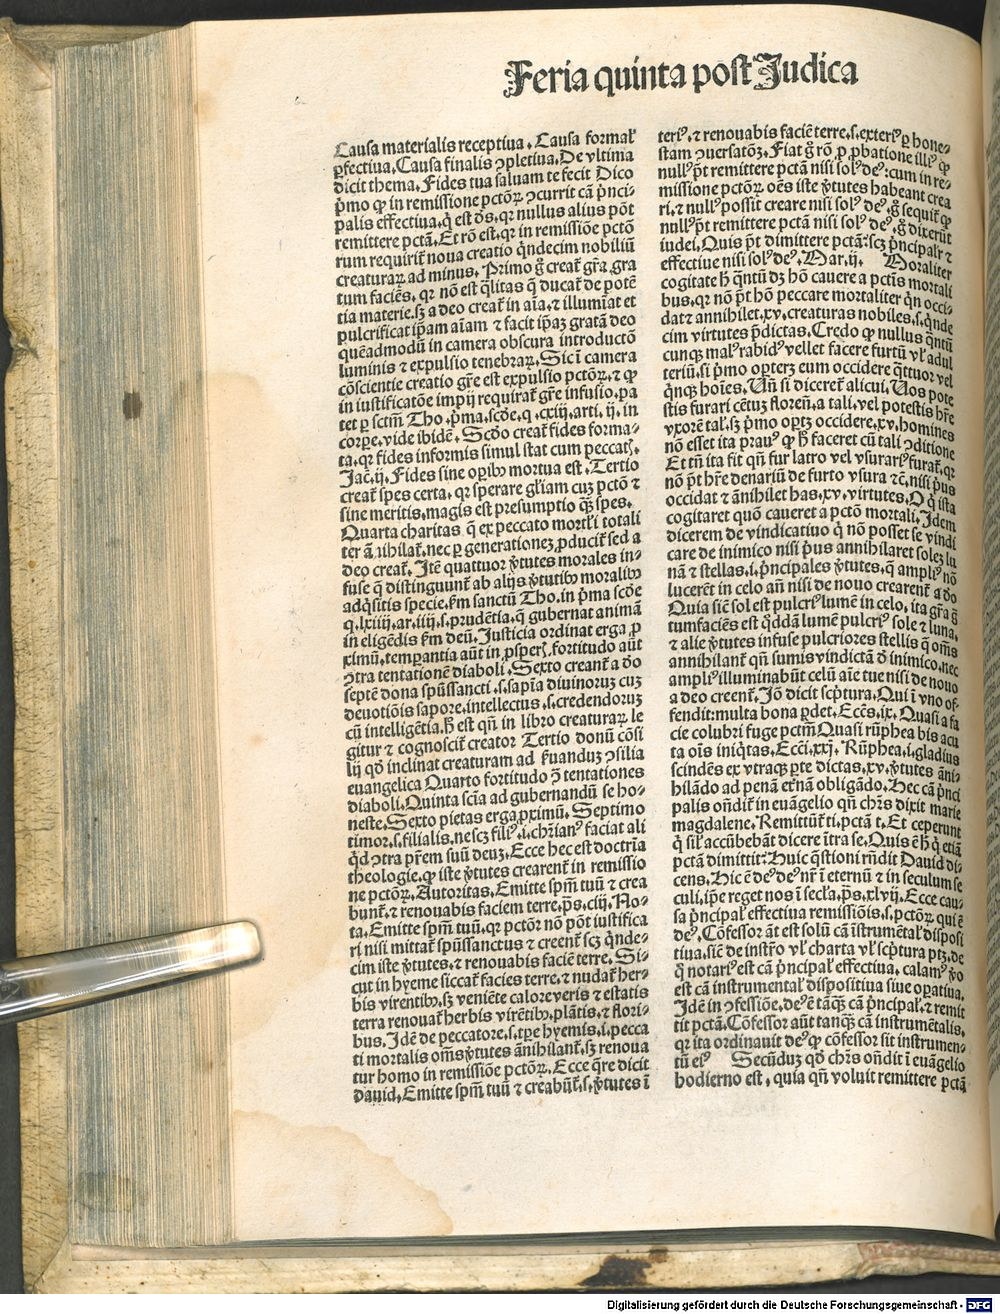 Feria quinta post Judica
Causa materialis receptiua. Causa formal̕
ꝑfectiua. Causa finalis ꝯpletiua. De vltima
dicit thema. Fides tua saluam te fecit Dico
p̄mo ꝙ in remissione pctōꝝ ꝯcurrit cā p̄nci-
palis effectiua. q̄ est dō̄s. qꝛ nullus alius pōt
remittere pctā. Et rō est. qꝛ in remissiōe pctō
rum requirit̄ noua creatio q̄ndecim nobiliū
creaturaꝝ ad minus. Primo g̊ creat̄ gr̄a. gra
tum faciēs. qꝛ nō est q̄litas q̄ ducat̄ de potē
tia materie. sꝫ a deo creat̄ in aīa. ⁊ illumīat et
pulcrificat ip̄am aīam ⁊ facit ip̄aꝫ gratā deo
quēadmodū in camera obscura introductō
luminis ⁊ expulsio tenebraꝝ. Sic ī camera
cōscientie creatio gr̄e est expulsio pctōꝝ. ⁊ ꝙ
in iustificatōe impij requirat̄ gr̄e infusio. pa
tet ꝑ sctm̄ Tho. p̄ma. scđe. q. cxiij. arti. ij. in
corpe. vide ibidē. Scđo creat̄ fides forma-
ta. qꝛ fides informis simul stat cum peccatꝭ.
Jac̄. ij. Fides sine opib⁹ mortua est. Tertio
creat̄ spes certa. qꝛ sperare gl̄iam cuꝫ pctō ⁊
sine meritis. magis est presumptio q̄ꝫ spes.
Quarta charitas q̄ ex peccato mortl̕i totali
ter ānihilat̄. nec ꝑ generationeꝫ ꝓducit̄ sed a
deo creat̄. Jtē quattuor v̄tutes morales in-
fuse q̄ distinguunt̄ ab alijs v̄tutib⁹ moralib⁹
adq̄sitis specie. ẜm sanctū Tho. in p̄ma scđe
q. lxiiij. ar. iiij. s. prudētia. q̄ gubernat animā
in eligēdis ẜm deū. Justicia ordinat erga ꝓ
ximū. temꝑantia aūt in ꝓsperꝭ. fortitudo aūt
ꝯtra tentationē diaboli. Sexto creant̄ a đo
septē dona spūssancti. s. sapīa diuinoruꝫ cuꝫ
deuotiōis sapore. intellectus. s. credendoruꝫ
cū intelligētia. h̄ est qn̄ in libro creaturaꝝ le
gitur ⁊ cognoscit̄ creator Tertio donū cōsi
lij qđ inclinat creaturam ad ẜuanduꝫ ꝯsilia
euangelica Quarto fortitudo ꝯ̄ tentationes
diaboli. Quinta scīa ad gubernandū se ho-
neste. Sexto pietas erga ꝓximū. Septimo
timor. s. filialis. ne scꝫ fili⁹. i. chr̄ian⁹ faciat ali
q̄d ꝯtra pr̄em suū deuꝫ. Ecce hec est doctrīa
theologie. ꝙ iste v̄tutes crearent̄ in remissio
ne pctōꝝ. Autoritas. Emitte spm̄ tuū ⁊ crea
bunt̄. ⁊ renouabis faciem terre. p̄s. ciij. No-
ta. Emitte spm̄ tuū. qꝛ pctōr nō pōt iustifica
ri nisi mittat̄ spūssanctus ⁊ creent̄ scꝫ q̄nde-
cim iste v̄tutes. ⁊ renouabis faciē terre. Si-
cut in hyeme siccat̄ facies terre. ⁊ nudat̄ her-
bis virentib⁹. sꝫ veniēte calore veris ⁊ estatis
terra renouat̄ herbis virētib⁹. plātis. ⁊ flori-
bus. Jdē de peccatore. s. tꝑe hyemis. i. pecca
ti mortalis om̄s v̄tutes ānihilant̄. sꝫ renoua
tur homo in remissiōe pctōꝝ. Ecce q̄re dicit
dauid. Emitte spm̄ tuū ⁊ creabūt̄. s. v̄tutes ī
teri⁹. ⁊ renouabis faciē terre. s. exteri⁹ ꝑ hone-
stam ꝯuersatōꝫ. Fiat g̊ rō. ꝓ ꝓbatione illi⁹ ꝙ
null⁹ pt̄ remittere pctā nisi sol⁹ de⁹: cum in re-
missione pctōꝝ oēs iste v̄tutes habeant crea
ri. ⁊ null⁹ possit creare nisi sol⁹ de⁹. g̊ sequit̄ ꝙ
null⁹ pt̄ remittere pctā nisi sol⁹ de⁹. g̊ dixerūt
iudei. Quis pt̄ dimittere pctā: scꝫ p̄ncipalr̄ ⁊
effectiue nisi sol⁹ de⁹. Mar. ij. Moraliter
cogitate h̄ q̄ntū dꝫ hō cauere a pctīs mortali
bus. qꝛ nō pt̄ hō peccare mortaliter qn̄ occi-
dat ⁊ annihilet. xv. creaturas nobiles. s. q̄nde
cim virtutes p̄dictas. Credo ꝙ nullus q̄ntū
cunqꝫ mal⁹ rabid⁹ vellet facere furtū vl̕ adul
teriū. si p̄mo oporterꝫ eum occidere q̄ttuor vel
q̄nqꝫ hoīes. Vn̄ si diceret̄ alicui. Uos pote
stis furari cētuꝫ floreñ. a tali. vel potestis hr̄e
vxorē tal̕. sꝫ p̄mo optꝫ occidere. xv. homines
nō esset ita prau⁹ ꝙ h̄ faceret cū tali ꝯditione
Et tn̄ ita fit qn̄ fur latro vel vsurari⁹ furat̄. qꝛ
nō pt̄ hr̄e denariū de furto vsura ⁊c̄. nisi p̄us
occidat ⁊ ānihilet has. xv. virtutes. O q̄ ista
cogitaret quō caueret a pctō mortali. Jdem
dicerem de vindicatiuo q̄ nō posset se vindi
care de inimico nisi p̄us annihilaret soleꝫ lu
nā ⁊ stellas. i. p̄ncipales v̄tutes. q̄ ampli⁹ nō
lucerēt in celo an̄ nisi de nouo crearent̄ a đo
Quia siē sol est pulcri⁹ lumē in celo. ita gr̄a g̃
tumfaciēs est q̄ddā lumē pulcri⁹ sole ⁊ luna.
⁊ alie v̄tutes infuse pulcriores stellis q̄ om̄s
annihilant̄ qn̄ sumis vindictā đ inimico. nec
ampli⁹ illuminabūt celū aīe tue nisi de nouo
a deo creent̄. Jō dicit scp̄tura. Qui ī vno of-
fendit: multa bona ꝑdet. Ecc̄s. ix. Quasi a fa
cie colubri fuge pctm̄ Quasi rūphea bis acu
ta oīs iniq̄tas. Ecc̄i. xxj. Rūphea. i. gladius
scindēs ex vtraqꝫ ꝑte dictas. xv. v̄tutes āni-
hilādo ad penā etn̄ā obligādo. Hec cā p̄nci
palis ondit̄ in euāgelio qn̄ chr̄s dixit marie
magdalene. Remittūt̄ ti. pctā t̄. Et ceperunt
q̄ sil̕ accūbebāt dicere īt̄ra se. Quis ē h̄ q̄ etiā
pctā dimittit: Huic q̄stioni rn̄dit Dauid di-
cens. Hic ē de⁹ de⁹ nr̄ ī eternū ⁊ in seculum se
culi. ip̄e reget nos ī secl̕a. p̄s. xlvij. Ecce cau-
sa p̄ncipal̕ effectiua remissiōis. s. pctōꝝ qui ē
de⁹. Cōfessor āt est solū cā īstrumētal̕ disposi
tiua. siē de instr̄o vl̕ charta vl̕ scp̄tura ptꝫ. de
q̄ notari⁹ est cā p̄ncipal̕ effectiua. calam⁹ v̄o
est cā instrumental̕ dispositiua siue opatiua.
Jdē in ꝯfessiōe. de⁹ ē tāq̄ꝫ cā p̄ncipal̕. ⁊ remit
tit pctā. Cōfessor aūt tanq̄ꝫ cā instrumētalis.
qꝛ ita ordinauit de⁹ ꝙ cōfessor sit instrumen-
tū ei⁹ Secūduꝫ qđ chr̄s ondit ī euāgelio
hodierno est. quia qn̄ voluit remittere pctā
Digitalisierung gefördert durch die Deutsche Forschungsgemeinschaft - DFG